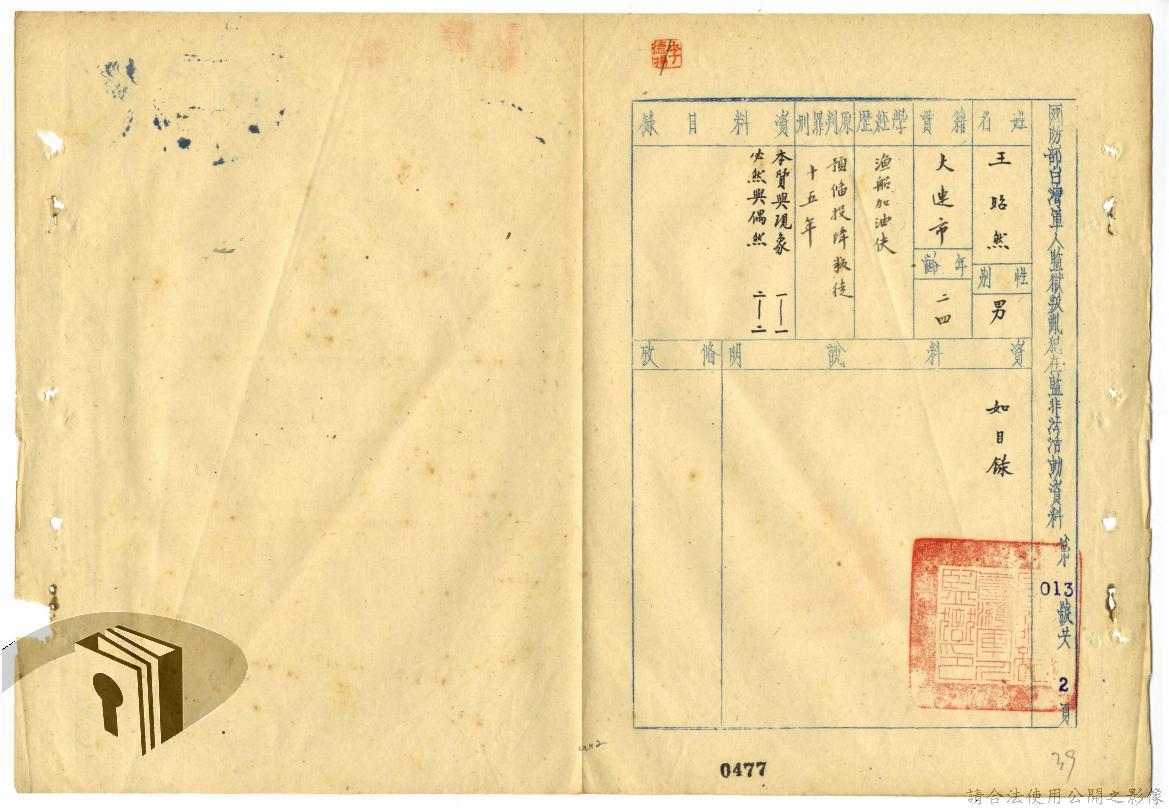 國防部台灣軍人監獄叛亂犯在監非法活動資料 第013號共2頁
姓名
王昭然
性別
男
籍貫
大連市
年齡
二四
學經歷
漁船加油伕
原判罪刑
預備投降叛徒
十五年
資料目錄
本質與現象 一—一
必然與偶然 二—二
資料說明
如目錄
備攷
0477
39
請合法使用公開之影像